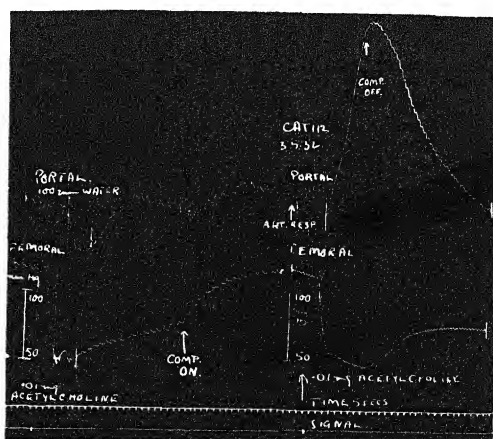 COMP.
OFF.
CAT 112
3.5.32
PORTAL.
100 mm WATER
PORTAL
ART. RESP.
FEMORAL
FEMORAL
Hg
100
100
50
50
COMP.
ON.
.01 mg
ACETYLCHOLINE
.01 mg ACETYLCHOLINE
TIME SECS
SIGNAL